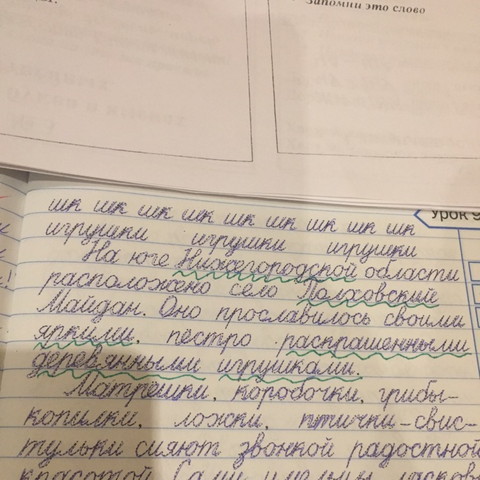 Запомни это слово
Урок 9
шк шк шк шк шк шк шк шк шк
игрушки игрушки игрушки
На юге Нижегородской области
расположено село Полховский
Майдан. Оно прославилось своими
яркими, пестро раскрашенными
деревянными игрушками.
Матрёшки, коробочки, грибы-
копилки, ложки, птички-свис-
тульки сияют звонкой радостной
красотой. Сами